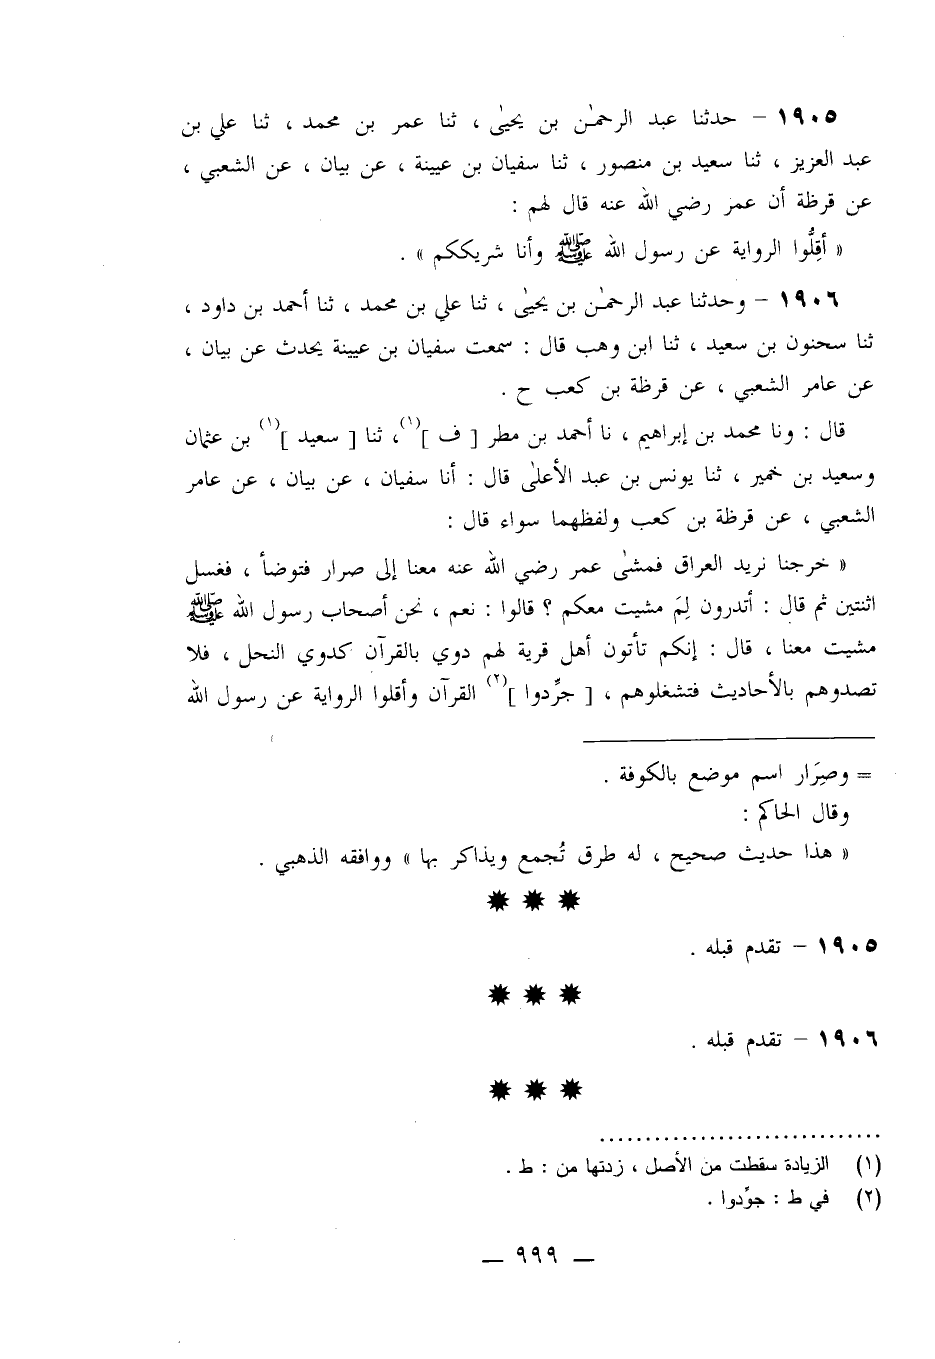 ١٩٠٥ – حدثنا عبد الرحمٰن بن يحيىٰ ، ثنا عمر بن محمد ، ثنا علي بن
عبد العزيز ، ثنا سعيد بن منصور ، ثنا سفيان بن عيينة ، عن بيان ، عن الشعبي ،
عن قرظة أن عمر رضي الله عنه قال لهم :
« أقِلُّوا الرواية عن رسول الله ﷺ وأنا شريككم » .
١٩٠٦ – وحدثنا عبد الرحمٰن بن يحيىٰ ، ثنا علي بن محمد ، ثنا أحمد بن داود ،
ثنا سحنون بن سعيد ، ثنا ابن وهب قال : سمعت سفيان بن عيينة يحدث عن بيان ،
عن عامر الشعبي ، عن قرظة بن كعب ح .
قال : ونا محمد بن إبراهيم ، نا أحمد بن مطر [ ف ](١)، ثنا [ سعيد ](١) بن عثمان
وسعيد بن خمير ، ثنا يونس بن عبد الأعلىٰ قال : أنا سفيان ، عن بيان ، عن عامر
الشعبي ، عن قرظة بن كعب ولفظهما سواء قال :
« خرجنا نريد العراق فمشىٰ عمر رضي الله عنه معنا إلى صرار فتوضأ ، فغسل
اثنتين ثم قال : أتدرون لِمَ مشيت معكم ؟ قالوا : نعم ، نحن أصحاب رسول الله ﷺ
مشيت معنا ، قال : إنكم تأتون أهل قرية لهم دوي بالقرآن كدوي النحل ، فلا
تصدوهم بالأحاديث فتشغلوهم ، [ جرِّدوا ](٢) القرآن وأقلوا الرواية عن رسول الله
= وصِرَار اسم موضع بالكوفة .
وقال الحاكم :
« هذا حديث صحيح ، له طرق تُجمع ويذاكر بها » ووافقه الذهبي .
١٩٠٥ – تقدم قبله .
١٩٠٦ – تقدم قبله .
(١) الزيادة سقطت من الأصل ، زدتها من : ط .
(٢) في ط : جوِّدوا .
— ٩٩٩ —